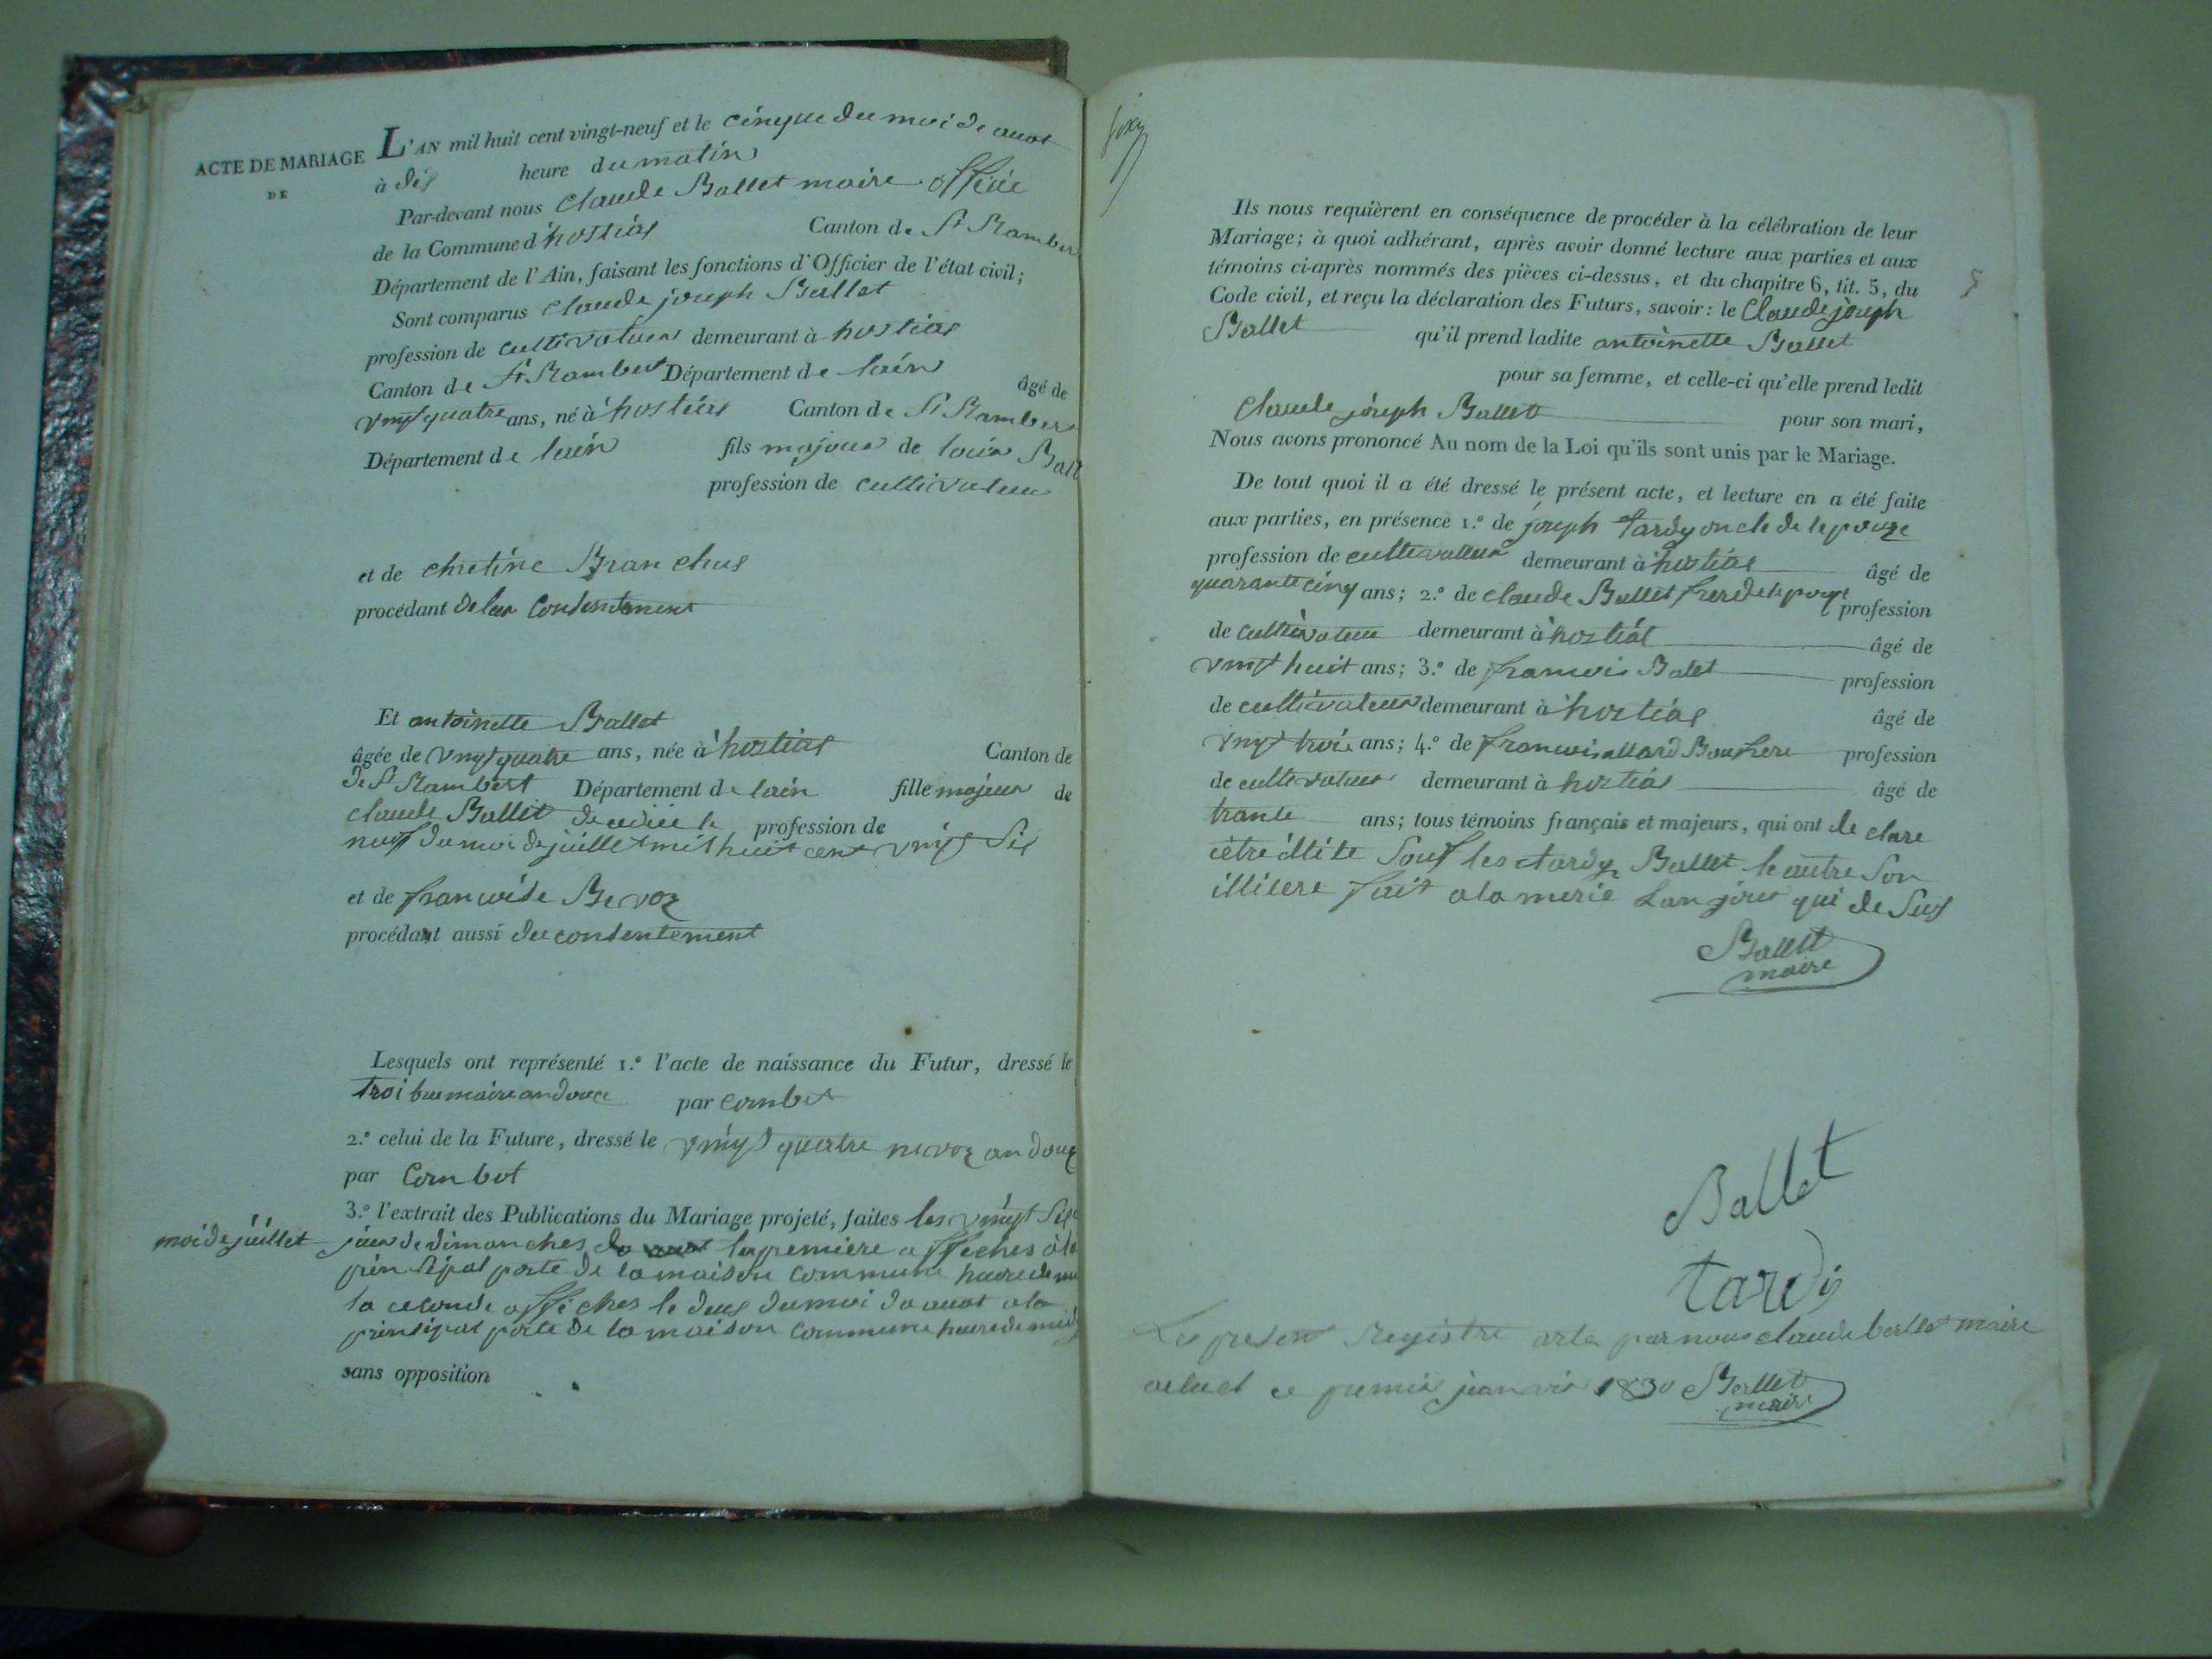 ACTE DE MARIAGE
DE
L'AN mil huit cent vingt-neuf et le cinque du moi de auot
à dis heure du matin
Par-devant nous claude Ballet maire office
de la Commune d'hostias Canton de StRamber
Département de l'Ain, faisant les fonctions d'Officier de l'état civil;
Sont comparus claude joseph Ballet
profession de cultivateur demeurant à hostias
Canton de St Rambert Département de lain âgé de
vingt quatre ans, né à hostias Canton de St Ramber
Département de lain fils majeur de louis Ball
profession de cultivateur
et de chretine Branchus
procédant de leur Consentement
Et antoinette Ballet
âgée de vingt quatre ans, née à hostias Canton de
de St Rambert Département de lain fille majeur de
claude Ballet decedée le profession de
neuf du moi de juillet mil huit cent vingt sis
et de francoise Bevoz
procédant aussi du consentement
Lesquels ont représenté 1.º l'acte de naissance du Futur, dressé le
troi brumaire an douce par Combet
2.º celui de la Future, dressé le vingt quatre nivoz an douz
par Combet
3.º l'extrait des Publications du Mariage projeté, faites les vingt sis
moi de juillet jour de dimanches la premiere affiches à la
prinsipal porte de la maison commune heure de
la ceconde affiches le deus du moi de auot a la
prinsipal porte de la maison commune heure de midi
sans opposition
Ils nous requièrent en conséquence de procéder à la célébration de leur
Mariage; à quoi adhérant, après avoir donné lecture aux parties et aux
témoins ci-après nommés des pièces ci-dessus, et du chapitre 6, tit. 5, du
Code civil, et reçu la déclaration des Futurs, savoir: le Claude joseph
Ballet qu'il prend ladite antoinette Ballet
pour sa femme, et celle-ci qu'elle prend ledit
Claude joseph Ballet pour son mari,
Nous avons prononcé Au nom de la Loi qu'ils sont unis par le Mariage.
De tout quoi il a été dressé le présent acte, et lecture en a été faite
aux parties, en présence 1.º de joseph tardy oncle de lepouze
profession de cultivateur demeurant à hostias âgé de
quarante cinq ans; 2.º de claude Ballet frere de lepouze profession
de cultivateur demeurant à hostias âgé de
vingt huit ans; 3.º de francois Balet profession
de cultivateur demeurant à hostias âgé de
vingt trois ans; 4.º de francois allard Baufrere profession
de cultivateur demeurant à hostias âgé de
trante ans; tous témoins français et majeurs, qui ont de clare
cètre illite Souf les tardy Ballet le autre Son
illitere fait a la merie Lan jour qui de Sus
Ballet
maire
Ballet
tardy
Le present Registre par nous claude ballet maire
ce premier janvier 1830 Ballet
maire